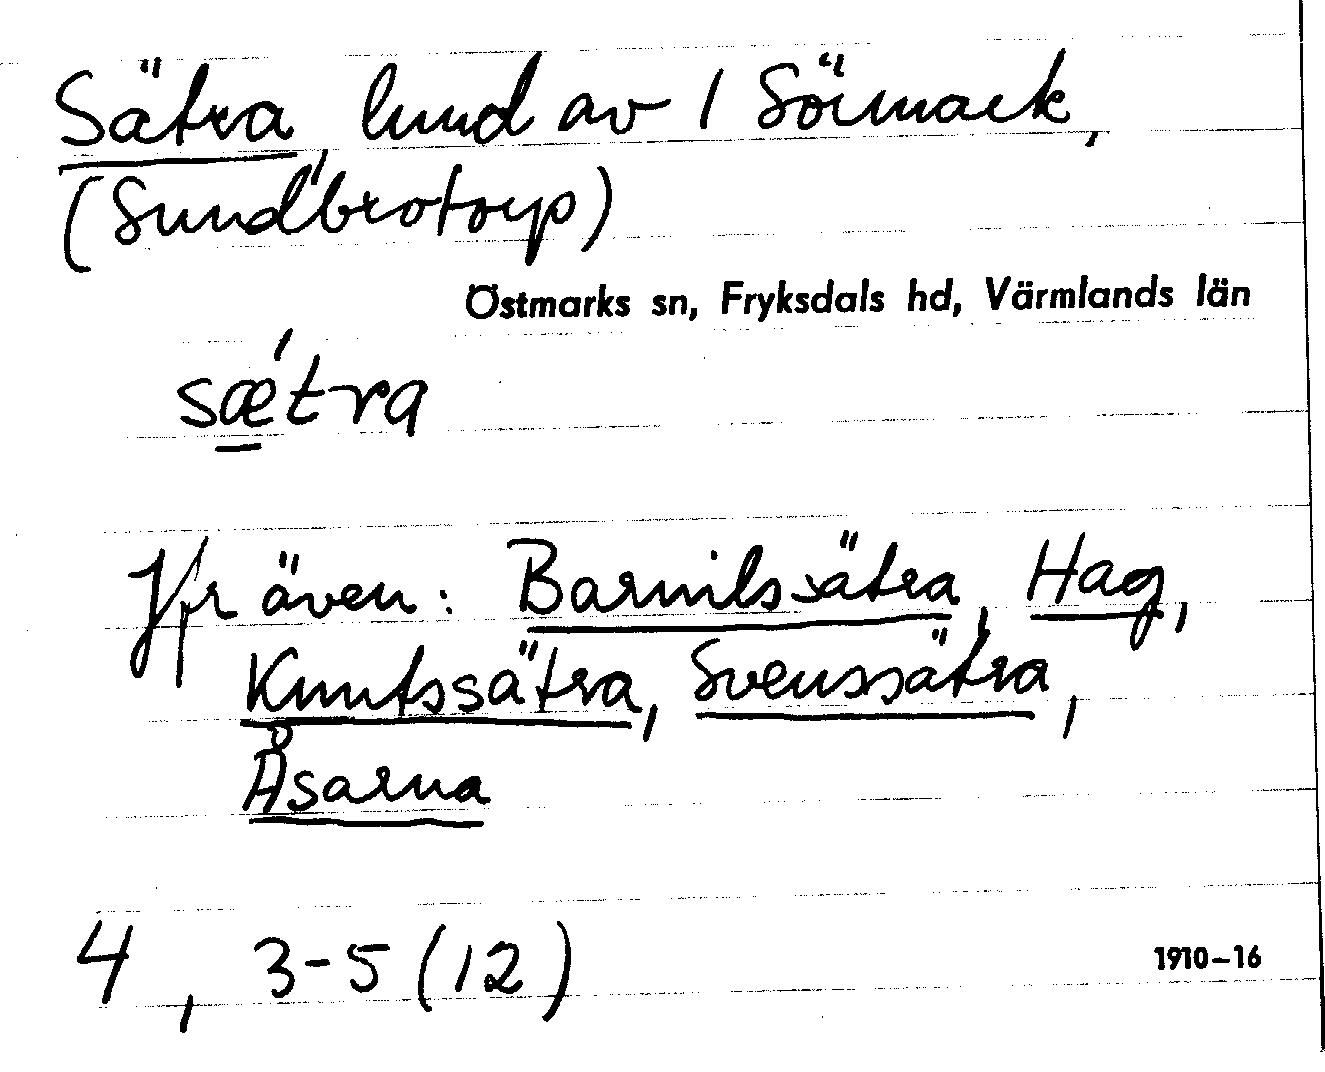 Sätra, lund av 1 Sörmark,
(Sundbrotorp)
Östmarks sn, Fryksdals hd, Värmlands län
sǽtra
Jfr även: Barnilssätra, Hag,
Knutssätra, Svenssätra,
Åsarna
4, 3-5 (12)
1910-16